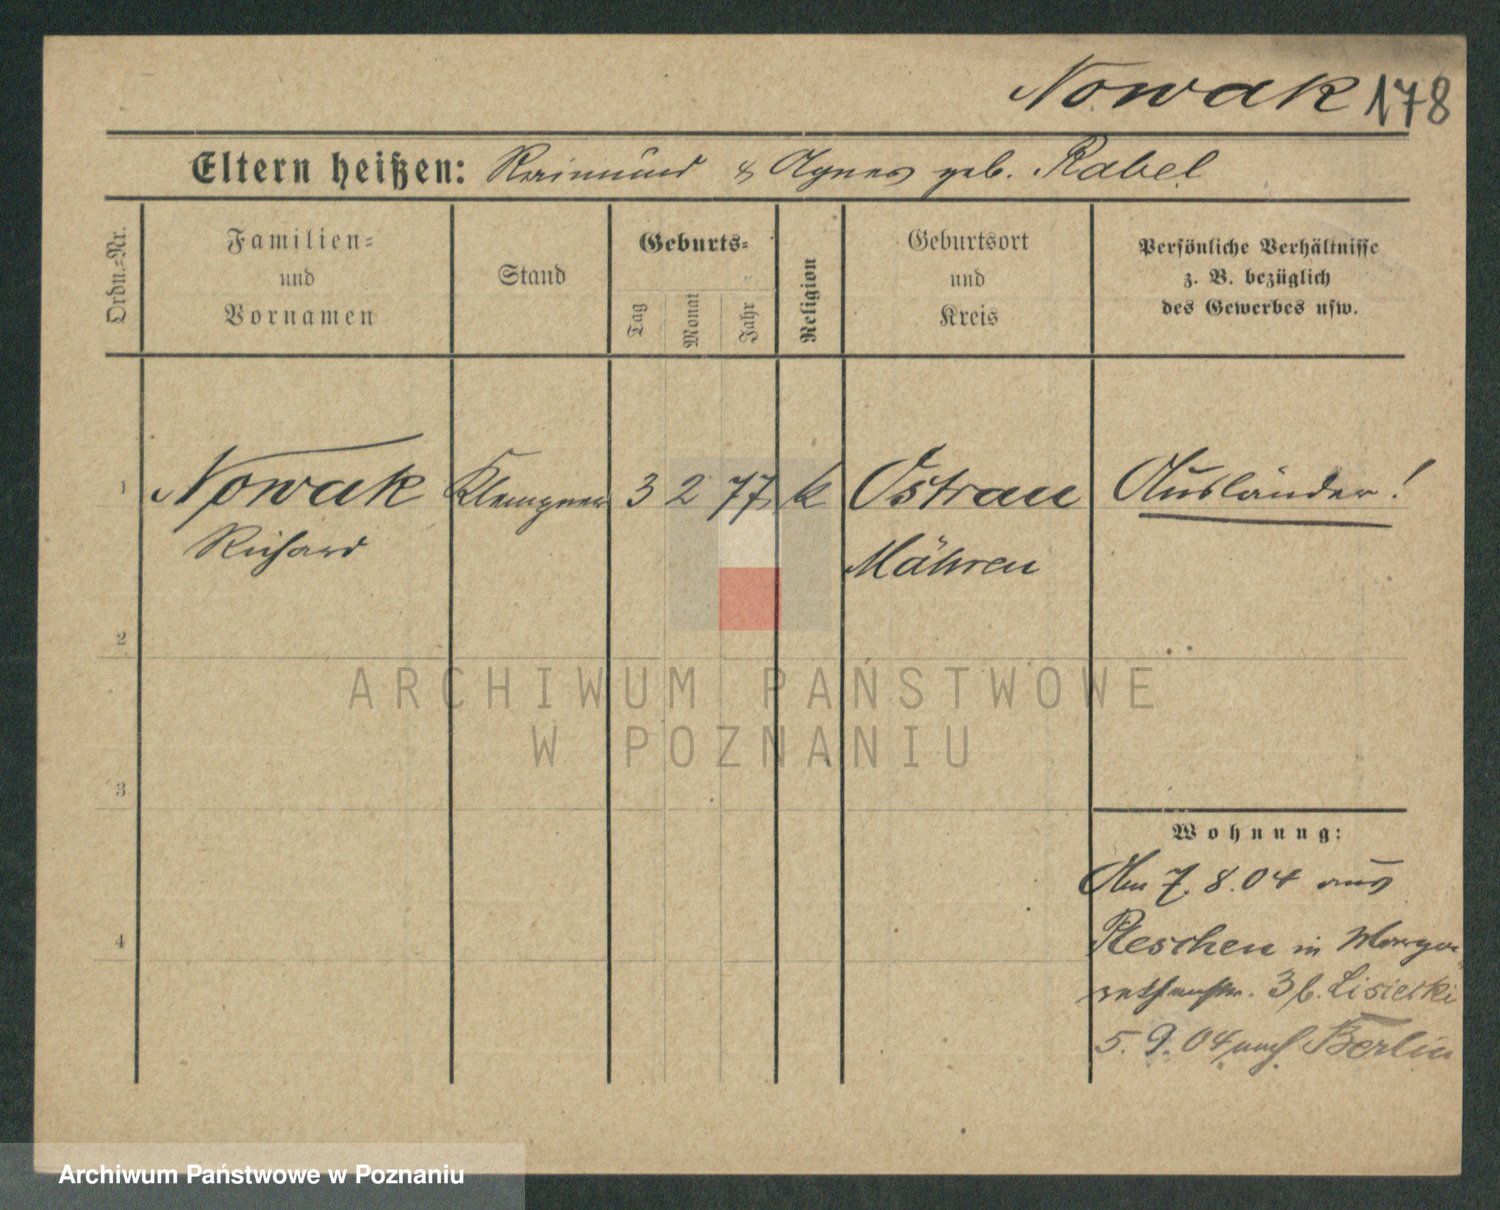 Nowak 178
Eltern heißen: Raimund & Agnes geb. Rabel
Ordn.=Nr.
Familien=
und
Vornamen
Stand
Geburts=
Tag
Monat
Jahr
Religion
Geburtsort
und
Kreis
Persönliche Verhältnisse
z. B. bezüglich
des Gewerbes usw.
1 Nowak Klempner 3 2 77 k Ostrau Ausländer!
Richard Mähren
2
ARCHIWUM PAŃSTWOWE
W POZNANIU
3
Wohnung:
Am 7.8.04 aus
4 Pleschen in
3 b. Lisiecki
5.9.04 nach Berlin
Archiwum Państwowe w Poznaniu